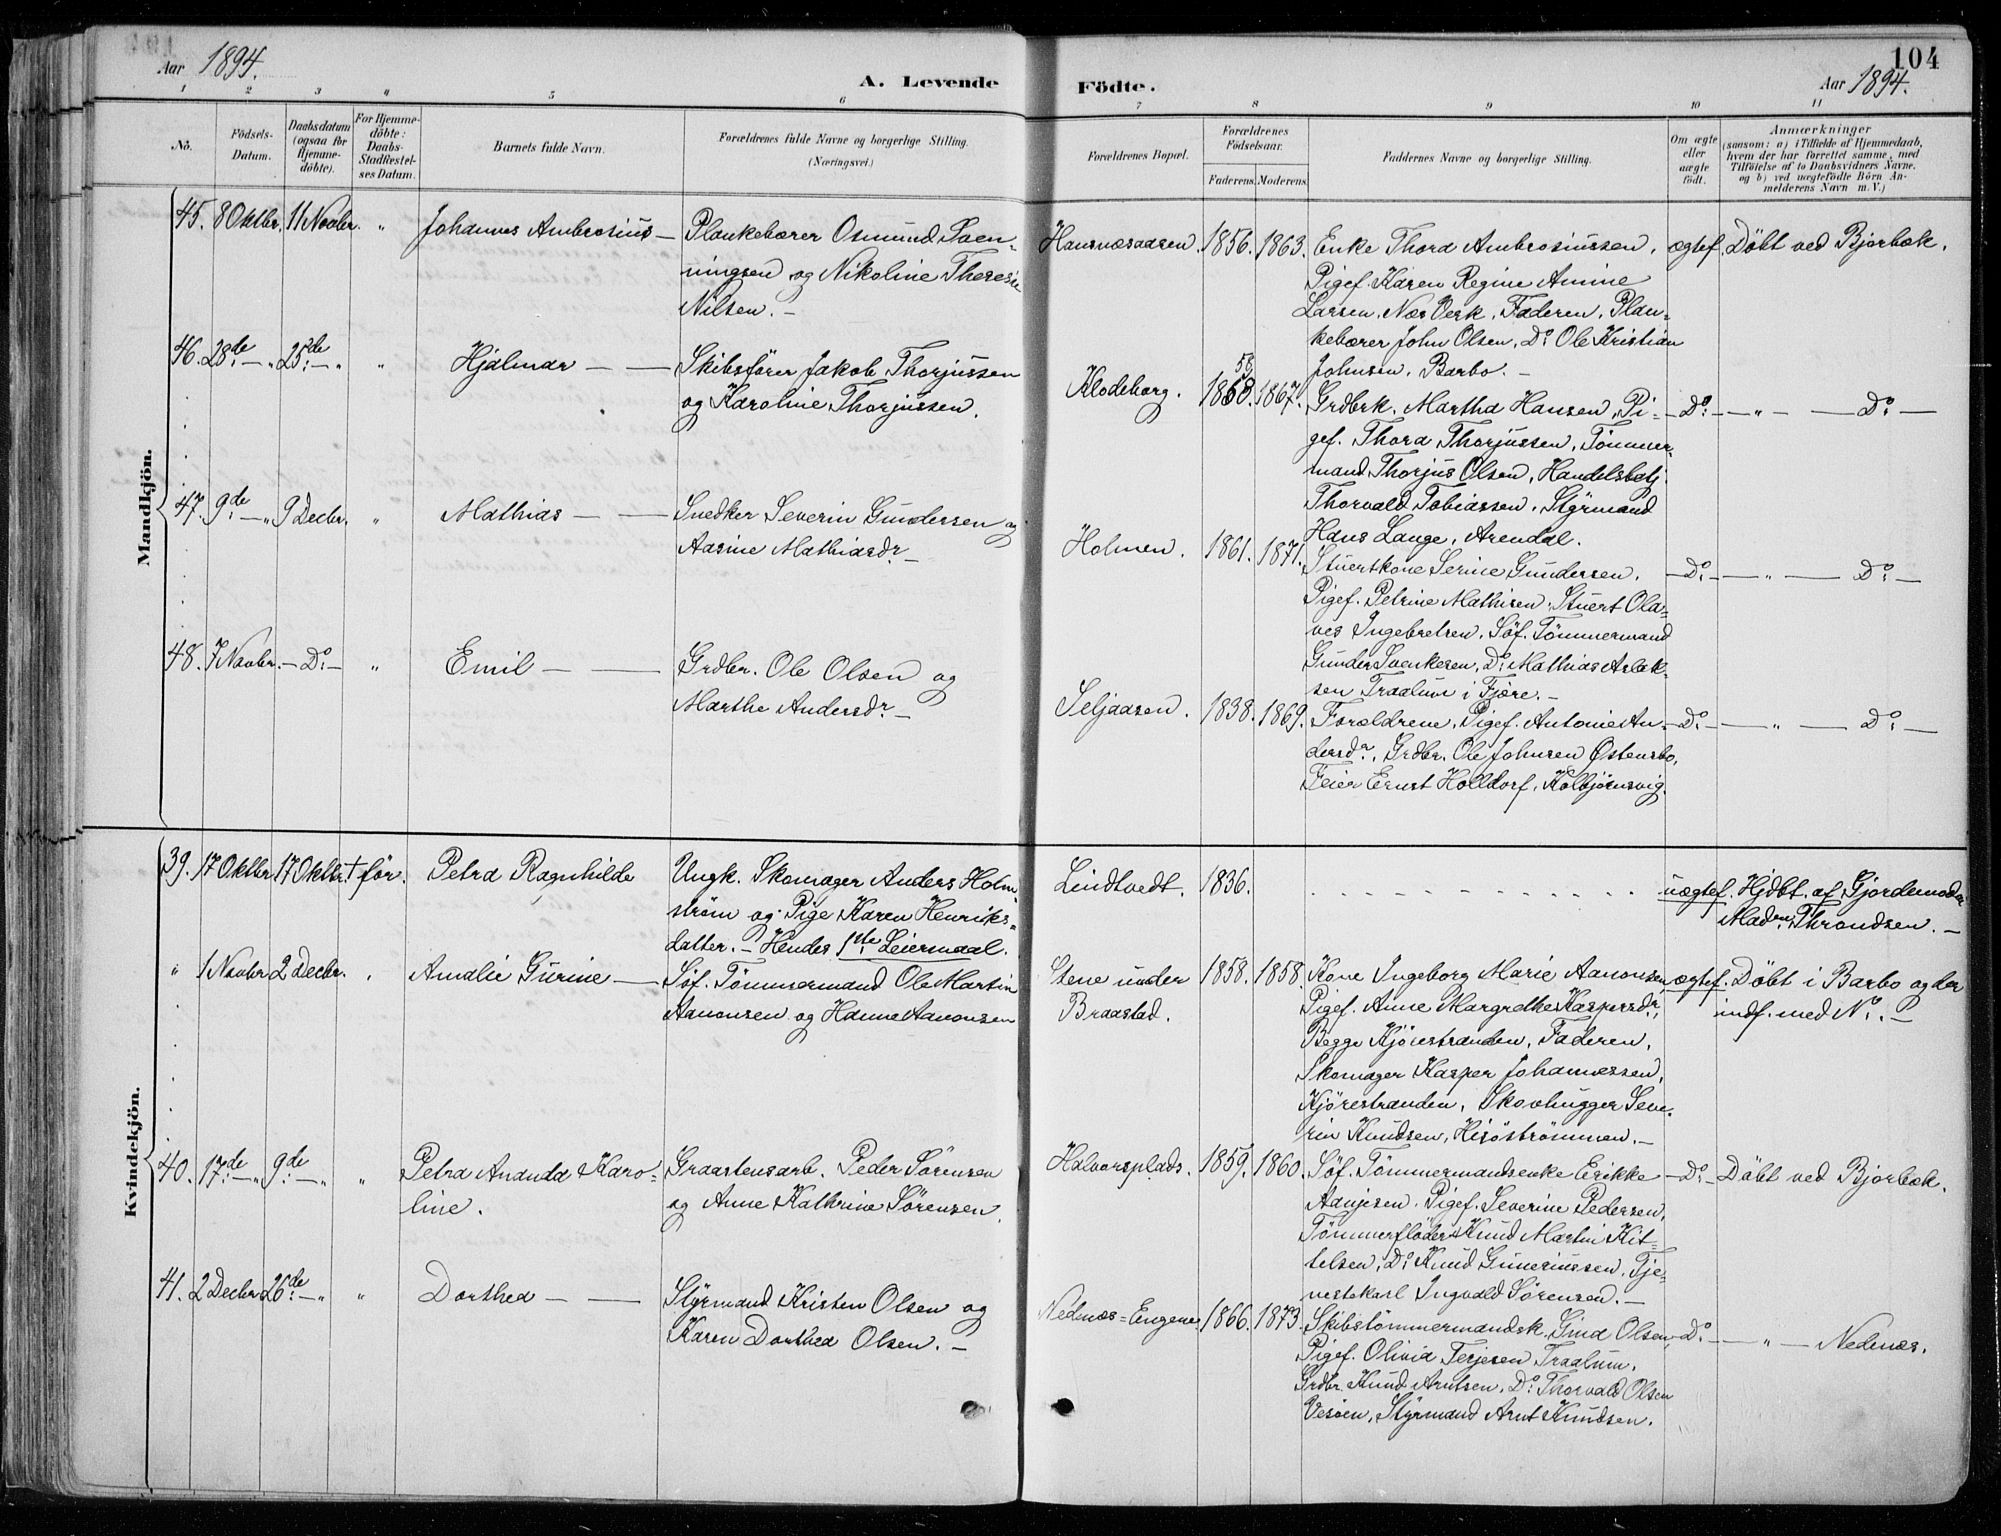 Aar 1894.
A. Levende
Födte.
104
Aar 1894.
1 2 3 " 5 6 7 8 9 10 11
No.
Födsels-
Datum.
Daabsdatum
(ogsaa for
Hjemme-
döbte).
For Hjemme-
döbte:
Daabs-
Stadfæstel-
ses Datum.
Barnets fulde Navn.
Forældrenes fulde Navne og borgerlige Stilling.
(Næringsvei.)
Forældrenes Bopæl.
Forældrenes
Födselsaar.
Faderens. Moderens.
Faddernes Navne og borgerlige Stilling.
Om ægte
eller
uægte
födt.
Anmærkninger
(saasom: a) i Tilfælde af Hjemmedaab,
hvem der har forrettet samme, med
Tilföielse af to Daabsvidners Navne,
og b) ved uægtefödte Börn An-
melderens Navn m. V.)
Mandkjön.
45. 8 Oktbr. 11 Novbr. " Johannes Ambrosius —
Plankebærer Osmund Svenningsen og Nikoline Theresie
Nilsen. —
Hansnæsaasen. 1856. 1863.
Enke Thora Ambrosiussen,
Pigef. Karen Regine Amine
Larsen, Næs Verk, Faderen, Plan-
kebærer John Olsen, Do Ole Kristian
Johnsen, Barbo. —
ægtef. Döbt ved Bjorbæk.
46. 28de — " 25de — " " Hjalmar — —
Skibsfører Jakob Thorjussen
og Karoline Thorjussen.
Klodeborg. 1858. 1867.
Grdbrk. Martha Hansen, Pi-
gef. Thora Thorjussen, Tömmer-
mand Thorjus Olsen, Handelsbetj.
Thorvald Tobiassen, Styrmand
Hans Lange, Arendal.
— Do — " — Do —
47. 9de — " 9 Decbr. " Mathias — —
Snedker Severin Gundersen og
Aasine Mathiasdr —
Holmen. 1861. 1871.
Stuertkone Serine Gundersen,
Pigef. Petrine Mathisen, Stuert Ola-
ves Ingebretsen, Söf. Tömmermand
Gunder Svenkesen, Do Mathias Aslak-
sen Traalum i Fjære. —
— Do — " — Do —
48. 7 Novbr. — Do — " Emil — —
Grdbr. Ole Olsen og
Marthe Andersdr —
Seljaasen. 1838. 1869.
Forældrene, Pigef. Antonie An-
dersdr, Grdbr. Ole Johnsen Østensbo,
Feier Ernst Holldorf, Kolbjörnsvig.
— Do — " — Do —
Kvindekjön.
39. 17 Oktbr. 17 Oktbr. † før. Petra Ragnhilde
Ungk. Skomager Anders Holm-
ström og Pige Karen Henriks-
datter. — Hendes 1ste Leiermaal.
Lindtvedt. 1836.
uægtef. Hjdbt. af Gjordemoder
Madm Throndsen. —
" 1 Novbr. 2 Decbr. " Amalie Gurine —
Söf. Tömmermand Ole Martin
Aanonsen og Hanne Aanonsen
Stene under
Braastad.
1858. 1858.
Kone Ingeborg Marie Aanonsen,
Pigef. Anne Margrethe Kaspersdr,
Begge Kjöiestranden, Faderen,
Skomager Kasper Johannessen,
Kjörestranden, Skovhugger Seve-
rin Knudsen, Hisöströmmen. —
ægtef. Döbt i Barbo og der
indf. med No. —
40. 17de — " 9de — " " Petra Ananda Karo-
line.
Graastensarb. Peder Sørensen
og Anne Kathrine Sørensen.
Halvorsplads. 1859. 1860.
Söf. Tömmermandsenke Erikke
Aanjesen, Pigef. Severine Pedersen,
Tömmerfløder Knud Martin Kit-
telsen, Do Knud Guneriussen, Tje-
nestekarl Ingvald Sörensen. —
— Do — Döbt ved Bjorbæk.
41. 2 Decbr. 26de — " " Dorthea — —
Styrmand Kristen Olsen og
Karen Dorthea Olsen. —
Nedenæs-Engene. 1866. 1873.
Skibstömmermandsk. Gina Olsen,
Pigef. Olivia Terjesen Traalum,
Grdbr. Knud Arntsen, Do Thorvald Olsen
Vesöen, Styrmand Arnt Knudsen.
Do — " — Nedenæs.